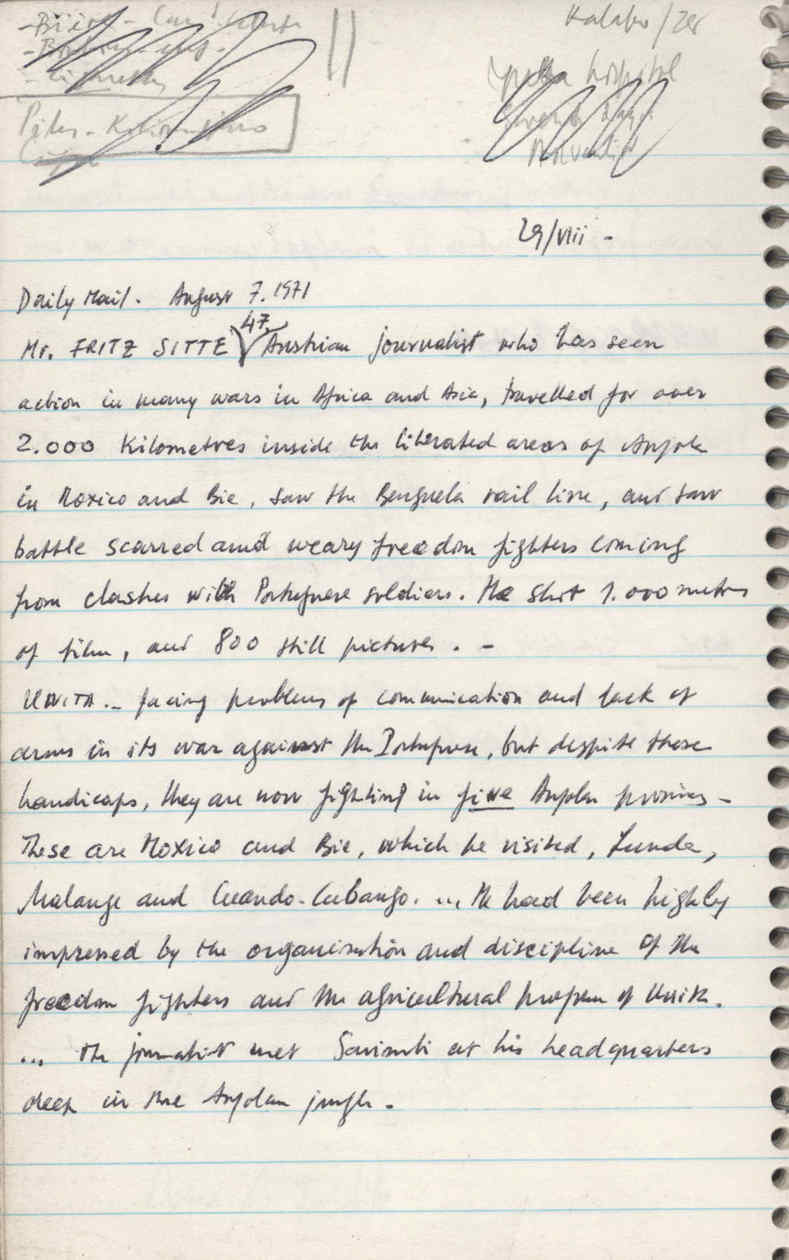 Kalabo/Zer
hospital
29/viii -
Daily Mail. August 7. 1971
47
Mr. FRITZ SITTE Austrian journalist who has seen
action in many wars in Africa and Asia, travelled for over
2.000 Kilometres inside the liberated areas of Angola
in Moxico and Bie, saw the Benguela rail line, and saw
battle scarred and weary freedom fighters coming
from clashes with Portuguese soldiers. He shot 1.000 metres
of film, and 800 still pictures. -
UNITA.- facing problems of communication and lack of
arms in its war against the Portuguese, but despite these
handicaps, they are now fighting in five Angolan provinces -
These are Moxico and Bie, which he visited, Lunda,
Malange and Cuando-Cubango. ... He had been highly
impressed by the organisation and discipline of the
freedom fighters and the agricultural program of Unita.
... the journalist met Savimbi at his headquarters
deep in the Angolan jungle.-